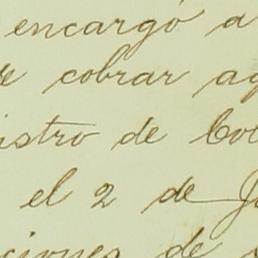 encargó a
cobrar
istro de
el 2 de
ciones de